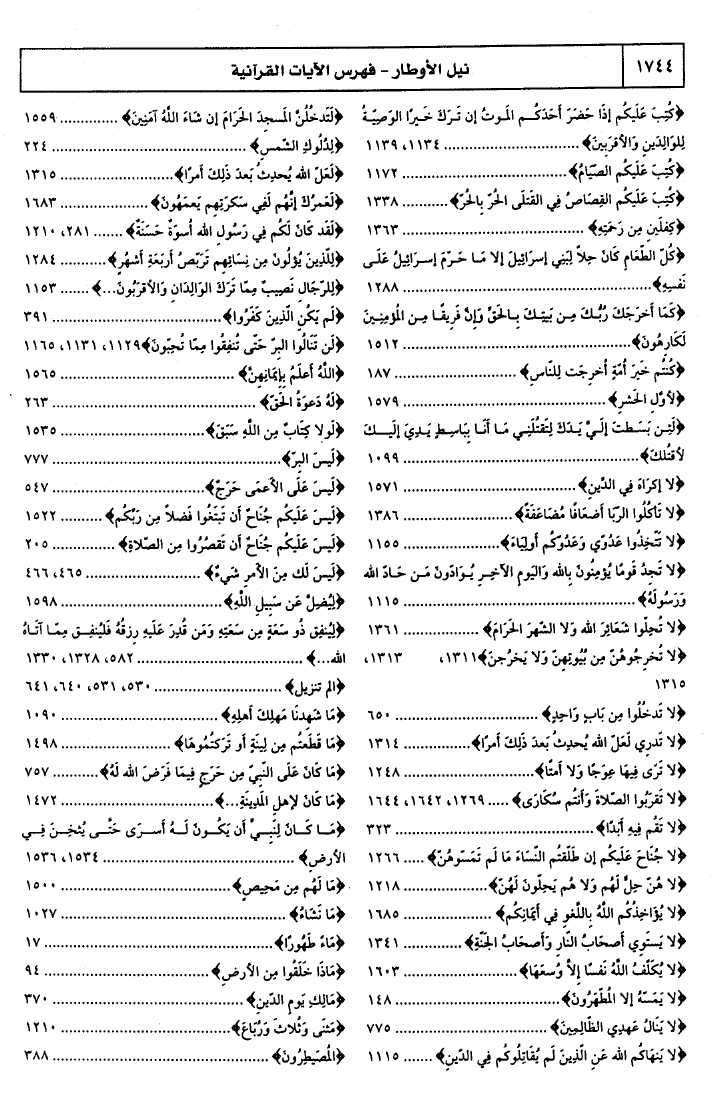 ١٧٤٤
نيل الأوطار - فهرس الآيات القرآنية
﴿كُتِبَ عَلَيكُم إذَا حَضَرَ أَحَدَكُـم المَوتُ إن تَرَكَ خَيـرًا الوَصِيَّـةُ
لِلوَالِدَينِ وَالأقرَبِينَ﴾ .......... ١١٣٤، ١١٣٩
﴿كُتِبَ عَلَيكُم الصِّيَامُ﴾ .......... ١١٧٢
﴿كُتِبَ عَلَيكُم القِصَاصُ فِي القَتلَى الحُرُّ بِالحُرِّ﴾ .......... ١٣٣٨
﴿كِفلَينِ مِن رَحمَتِهِ﴾ .......... ١٣٦٣
﴿كُلُّ الطَّعَامِ كَانَ حِلاًّ لِبَنِي إسرَائِيلَ إلا مَا حَرَّمَ إسرَائِيلُ عَلَـى
نَفسِهِ﴾ .......... ١٢٨٨
﴿كَمَا أَخرَجَكَ رَبُّـكَ مِـن بَيتِـكَ بِـالحَقِّ وَإنَّ فَرِيقًـا مِـنَ المُؤمِنِيـنَ
لَكَارِهُونَ﴾ .......... ١٥١٢
﴿كُنتُم خَيرَ أُمَّةٍ أُخرِجَت لِلنَّاسِ﴾ .......... ١٨٧
﴿لأوَّلِ الحَشرِ﴾ .......... ١٥٧٩
﴿لَئِـن بَسَطتَ إلَـيَّ يَـدَكَ لِتَقتُلَنِـي مَـا أَنَـا بِبَاسِـطٍ يَـدِيَ إلَيـكَ
لأقتُلَكَ﴾ .......... ١٠٩٩
﴿لا إكرَاهَ فِي الدِّينِ﴾ .......... ١٥٧١
﴿لا تَأكُلُوا الرِّبَا أَضعَافًا مُضَاعَفَةً﴾ .......... ١٣٨٦
﴿لا تَتَّخِذُوا عَدُوِّي وَعَدُوَّكُم أَولِيَاءَ﴾ .......... ١١٥٥
﴿لا تَجِدُ قَومًا يُؤمِنُونَ بِاللهِ وَاليَومِ الآخِـرِ يُـوَادُّونَ مَـن حَـادَّ الله
وَرَسُولَهُ﴾ .......... ١١١٥
﴿لا تُحِلُّوا شَعَائِرَ الله وَلا الشَّهرَ الحَرَامَ﴾ .......... ١٣٦١
﴿لا تُخرِجُوهُنَّ مِن بُيُوتِهِنَّ وَلا يَخرُجنَ﴾١٣١١، ١٣١٣،
١٣١٥
﴿لا تَدخُلُوا مِن بَابٍ وَاحِدٍ﴾ .......... ٦٥٠
﴿لا تَدرِي لَعَلَّ الله يُحدِثُ بَعدَ ذَلِكَ أَمرًا﴾ .......... ١٣١٤
﴿لا تَرَى فِيهَا عِوَجًا وَلا أَمتًا﴾ .......... ١٢٤٨
﴿لا تَقرَبُوا الصَّلاةَ وَأَنتُم سُكَارَى﴾ ..... ١٢٦٩، ١٦٤٢، ١٦٤٤
﴿لا تَقُم فِيهِ أَبَدًا﴾ .......... ٣٢٣
﴿لا جُنَاحَ عَلَيكُم إن طَلَّقتُم النِّسَاءَ مَا لَم تَمَسُّوهُنَّ﴾ ..... ١٢٦٦
﴿لا هُنَّ حِلٌّ لَهُم وَلا هُم يَحِلُّونَ لَهُنَّ﴾ .......... ١٢١٨
﴿لا يُؤَاخِذُكُم اللَّهُ بِاللَّغوِ فِي أَيمَانِكُم﴾ .......... ١٦٨٥
﴿لا يَستَوِي أَصحَابُ النَّارِ وَأَصحَابُ الجَنَّةِ﴾ .......... ١٣٤١
﴿لا يُكَلِّفُ اللَّهُ نَفسًا إلاَّ وُسعَهَا﴾ .......... ١٦٠٣
﴿لا يَمَسُّهُ إلا المُطَهَّرُونَ﴾ .......... ١٤٨
﴿لا يَنَالُ عَهدِي الظَّالِمِينَ﴾ .......... ٧٧٥
﴿لا يَنهَاكُم الله عَنِ الَّذِينَ لَم يُقَاتِلُوكُم فِي الدِّينِ﴾ ....... ١١١٥
﴿لَتَدخُلُنَّ المَسجِدَ الحَرَامَ إن شَاءَ اللَّهُ آمَنِينَ﴾ ............. ١٥٥٩
﴿لِدُلُوكِ الشَّمسِ﴾ .......... ٢٢٤
﴿لَعَلَّ الله يُحدِثُ بَعدَ ذَلِكَ أَمرًا﴾ .......... ١٣١٥
﴿لَعَمرُكَ إنَّهُم لَفِي سَكرَتِهِم يَعمَهُونَ﴾ .......... ١٦٨٣
﴿لَقَد كَانَ لَكُم فِي رَسُولِ الله أُسوَةٌ حَسَنَةٌ﴾ ....... ٢٨١، ١٢١٠
﴿لِلَّذِينَ يُؤلُونَ مِن نِسَائِهِم تَرَبُّصُ أَربَعَةِ أَشهُرٍ﴾ .......... ١٢٨٤
﴿لِلرِّجَالِ نَصِيبٌ مِمَّا تَرَكَ الوَالِدَانِ وَالأقرَبُونَ...﴾ ...... ١١٥٣
﴿لَم يَكُنِ الَّذِينَ كَفَرُوا﴾ .......... ٣٩١
﴿لَن تَنَالُوا البِرَّ حَتَّى تُنفِقُوا مِمَّا تُحِبُّونَ﴾١١٢٩، ١١٣١، ١١٦٥
﴿اللَّهُ أَعلَمُ بِإيمَانِهِنَّ﴾ .......... ١٥٦٥
﴿لَهُ دَعوَةُ الحَقِّ﴾ .......... ٢٦٣
﴿لَولا كِتَابٌ مِنَ اللَّهِ سَبَقَ﴾ .......... ١٥٣٥
﴿لَيسَ البِرَّ﴾ .......... ٧٧٧
﴿لَيسَ عَلَى الأعمَى حَرَجٌ﴾ .......... ٥٤٧
﴿لَيسَ عَلَيكُم جُنَاحٌ أَن تَبتَغُوا فَضلاً مِن رَبِّكُم﴾ .......... ١٥٢٢
﴿لَيسَ عَلَيكُم جُنَاحٌ أَن تَقصُرُوا مِنَ الصَّلاةِ﴾ .......... ٢٠٥
﴿لَيسَ لَكَ مِنَ الأمرِ شَيءٌ﴾ .......... ٤٦٥، ٤٦٦
﴿لِيُضِلَّ عَن سَبِيلِ اللَّهِ﴾ .......... ١٥٩٨
﴿لِيُنفِق ذُو سَعَةٍ مِن سَعَتِهِ وَمَن قُدِرَ عَلَيهِ رِزقُهُ فَليُنفِـق مِمَّـا آتَـاهُ
الله...﴾ .......... ٥٨٢، ١٣٢٨، ١٣٣٠
﴿الم تنزيل﴾ .......... ٥٣٠، ٥٣١، ٦٤٠، ٦٤١
﴿مَا شَهِدنَا مَهلِكَ أَهلِهِ﴾ .......... ١٠٩٠
﴿مَا قَطَعتُم مِن لِينَةٍ أَو تَرَكتُمُوهَا﴾ .......... ١٤٩٨
﴿مَا كَانَ عَلَى النَّبِيِّ مِن حَرَجٍ فِيمَا فَرَضَ الله لَهُ﴾ .......... ٧٥٧
﴿مَا كَانَ لأهلِ المَدِينَةِ...﴾ .......... ١٤٧٢
﴿مَـا كَـانَ لِنَبِـيٍّ أَن يَكُـونَ لَـهُ أَسـرَى حَتَّـى يُثخِـنَ فِـي
الأرضِ﴾ .......... ١٥٣٤، ١٥٣٦
﴿مَا لَهُم مِن مَحِيصٍ﴾ .......... ١٥٠٠
﴿مَا نَشَاءُ﴾ .......... ١٠٢٧
﴿مَاءً طَهُورًا﴾ .......... ١٧
﴿مَاذَا خَلَقُوا مِنَ الأرضِ﴾ .......... ٩٤
﴿مَالِكِ يَومِ الدِّينِ﴾ .......... ٣٧٠
﴿مَثنَى وَثُلاثَ وَرُبَاعَ﴾ .......... ١٢١٠
﴿المُصَيطِرُونَ﴾ .......... ٣٨٨